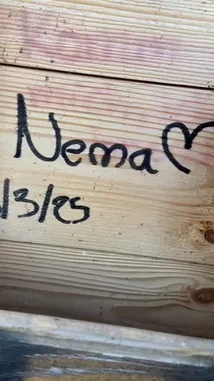 Nema ♡
/3/25